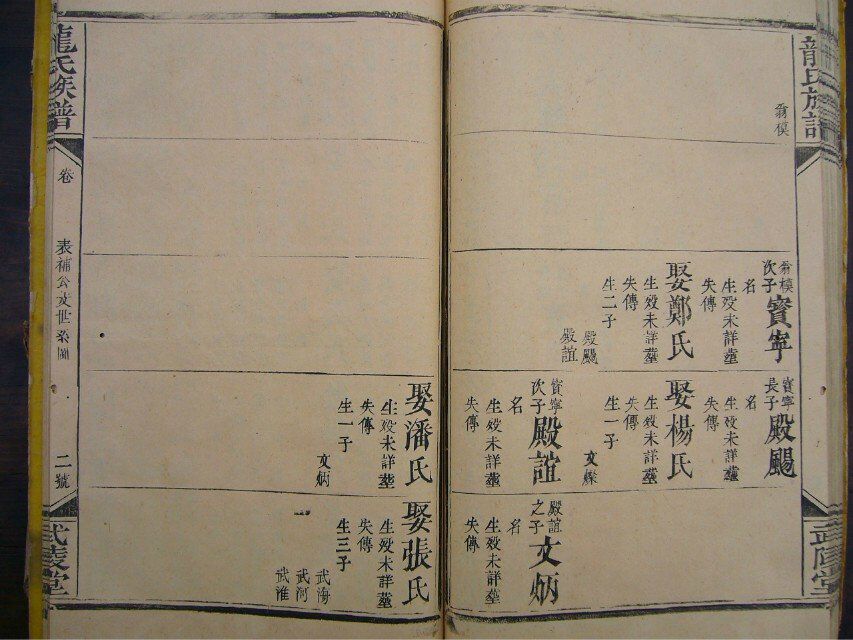 龍氏族譜
武陵堂
翁模
翁模
次子
賓寧
名
生歿未詳塟
失傳
娶鄭氏
生歿未詳塟
失傳
生二子
殿颺
殿誼
賓寧
長子
殿颺
名
生歿未詳塟
失傳
娶楊氏
生歿未詳塟
失傳
生一子
文燦
賓寧
次子
殿誼
名
生歿未詳塟
失傳
殿誼
之子
文炳
名
生歿未詳塟
失傳
娶潘氏
生歿未詳塟
失傳
生一子
文炳
娶張氏
生歿未詳塟
失傳
生三子
武海
武河
武淮
龍氏族譜
卷
表補公支世系圖
二號
武陵堂